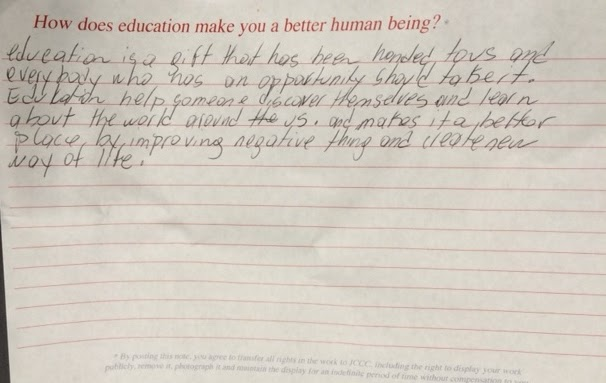 How does education make you a better human being?*
education is a gift that has been handed to us and
every body who has an opportunity should take it.
Education help someone discover themselves and learn
about the world around the us. and makes it a better
place, by improving negative thing and create new
way of life.
* By posting this note, you agree to transfer all rights in the work to JCCC, including the right to display your work
publicly, remove it, photograph it and maintain the display for an indefinite period of time without compensation to